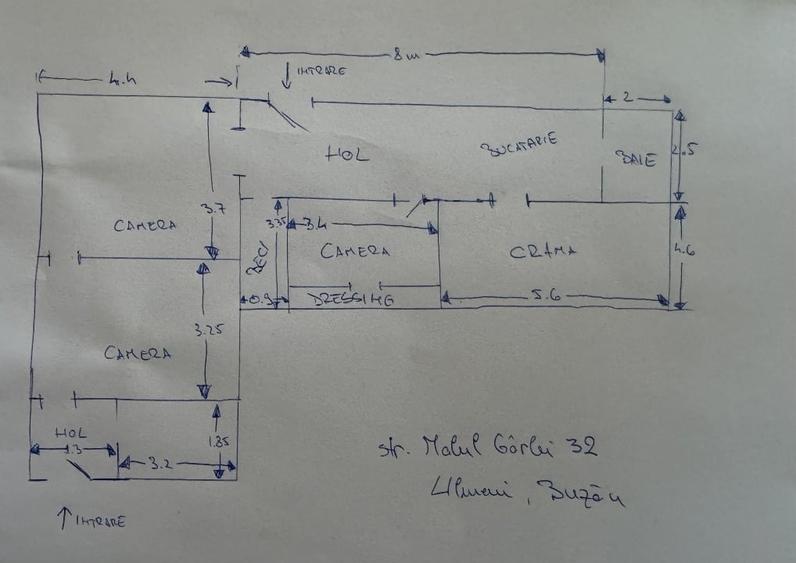 8m
4.4
INTRARE
2
HOL
BUCATARIE
BAIE
2.5
3.7
CAMERA
3.35
3.4
BECI
CAMERA
CRAMA
4.6
0.9
DRESSING
5.6
3.25
CAMERA
HOL
1.3
3.2
1.85
INTRARE
str. Malul Gârlei 32
Ulmeni, Buzău